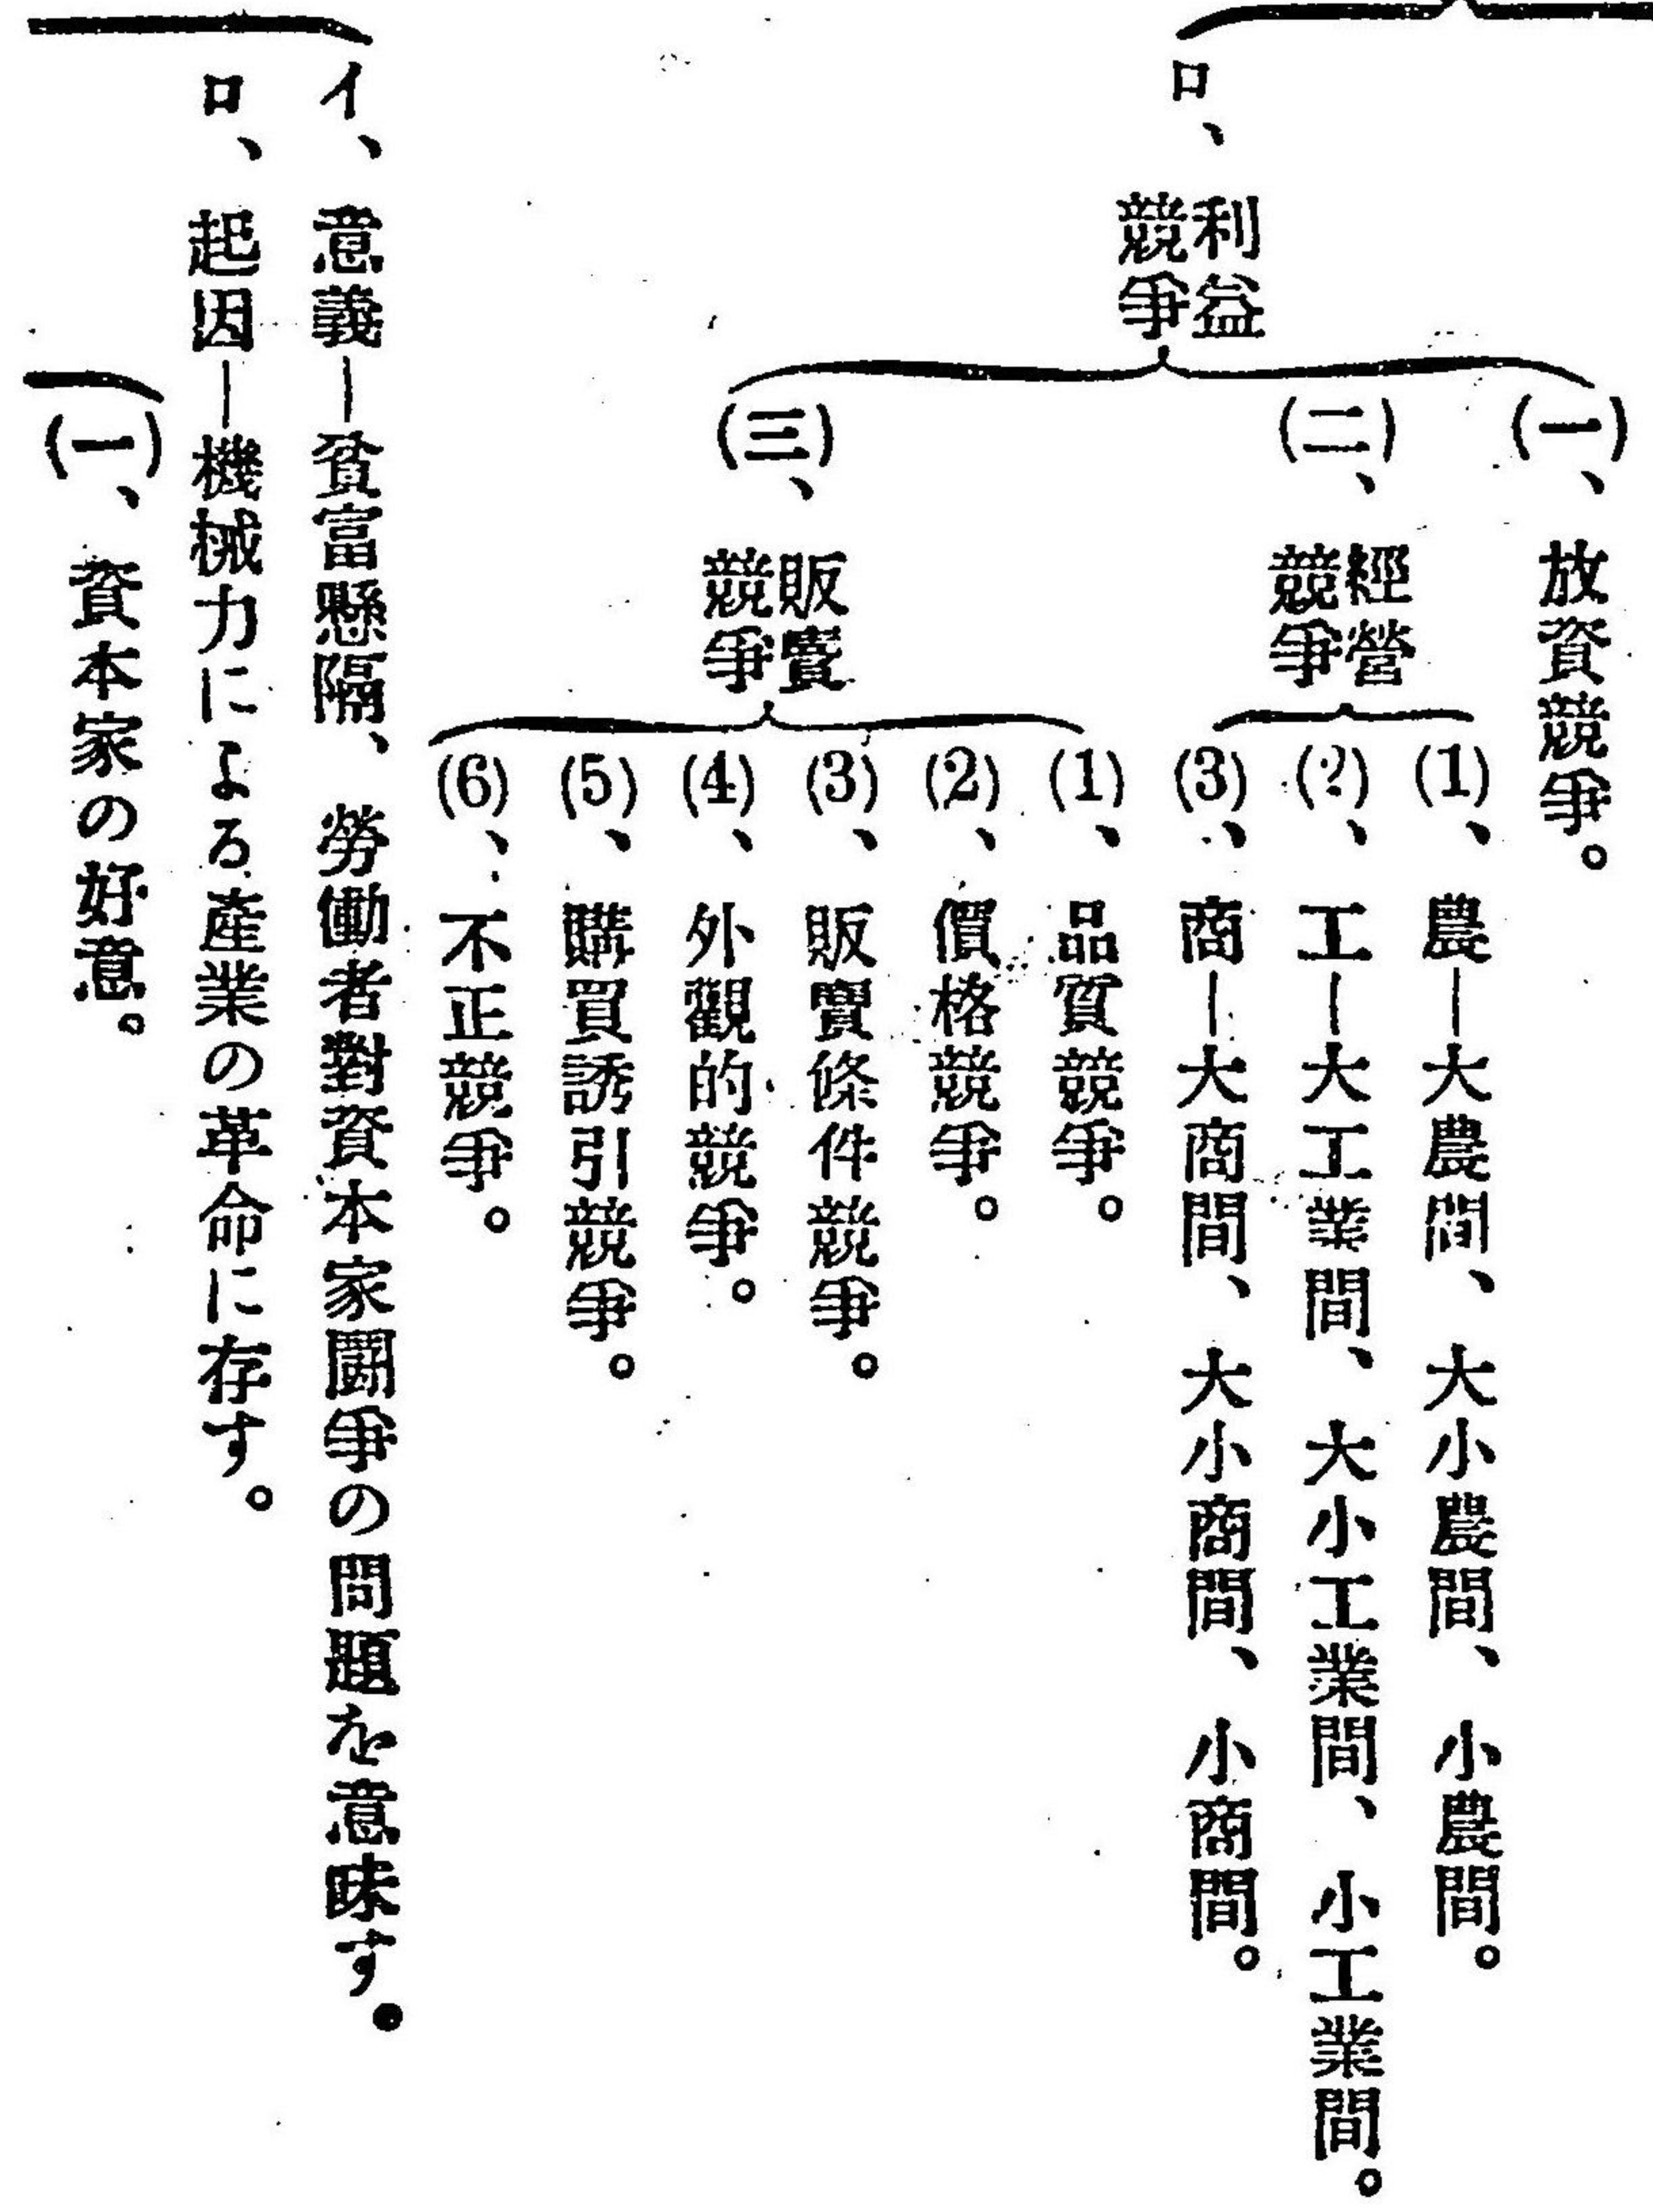 ロ、利益競爭
(一)、放資競爭。
(二)、經營競爭
(1)、農—大農間、大小農間、小農間。
(2)、工—大工業間、大小工業間、小工業間。
(3)、商—大商間、大小商間、小商間。
(三)、販賣競爭
(1)、品質競爭。
(2)、價格競爭。
(3)、販賣條件競爭。
(4)、外觀的競爭。
(5)、購買誘引競爭。
(6)、不正競爭。
イ、意義—貧富懸隔、勞働者對資本家鬪爭の問題を意味す。
ロ、起因—機械力による產業の革命に存す。
(一)、資本家の好意。